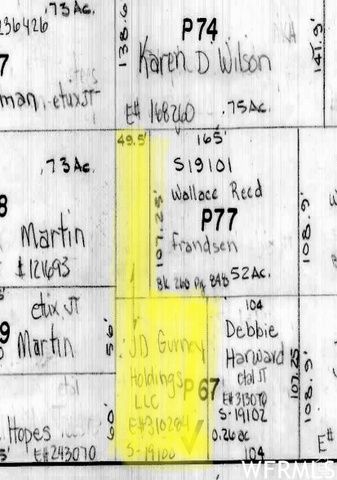 .73 Ac.
236426
138.6
P74
Karen D Wilson
E# 168260
.75Ac.
141.9'
7
man, etux JT
49.5'
165'
.73 Ac.
S19101
Wallace Reed
P77
Frandsen
107.25'
Bk 260 Pg 848
.52Ac.
108.9'
8
Martin
#121693
etux JT
9
Martin
56'
JD Gurney
Holdings
LLC
E#310284
S-19100
P67
104
Debbie
Harward
etal JT
E#313070
S-19102
0.26 ac
104
107.25
108.9'
60'
Hopes
E#243070
E#
WFRMLS